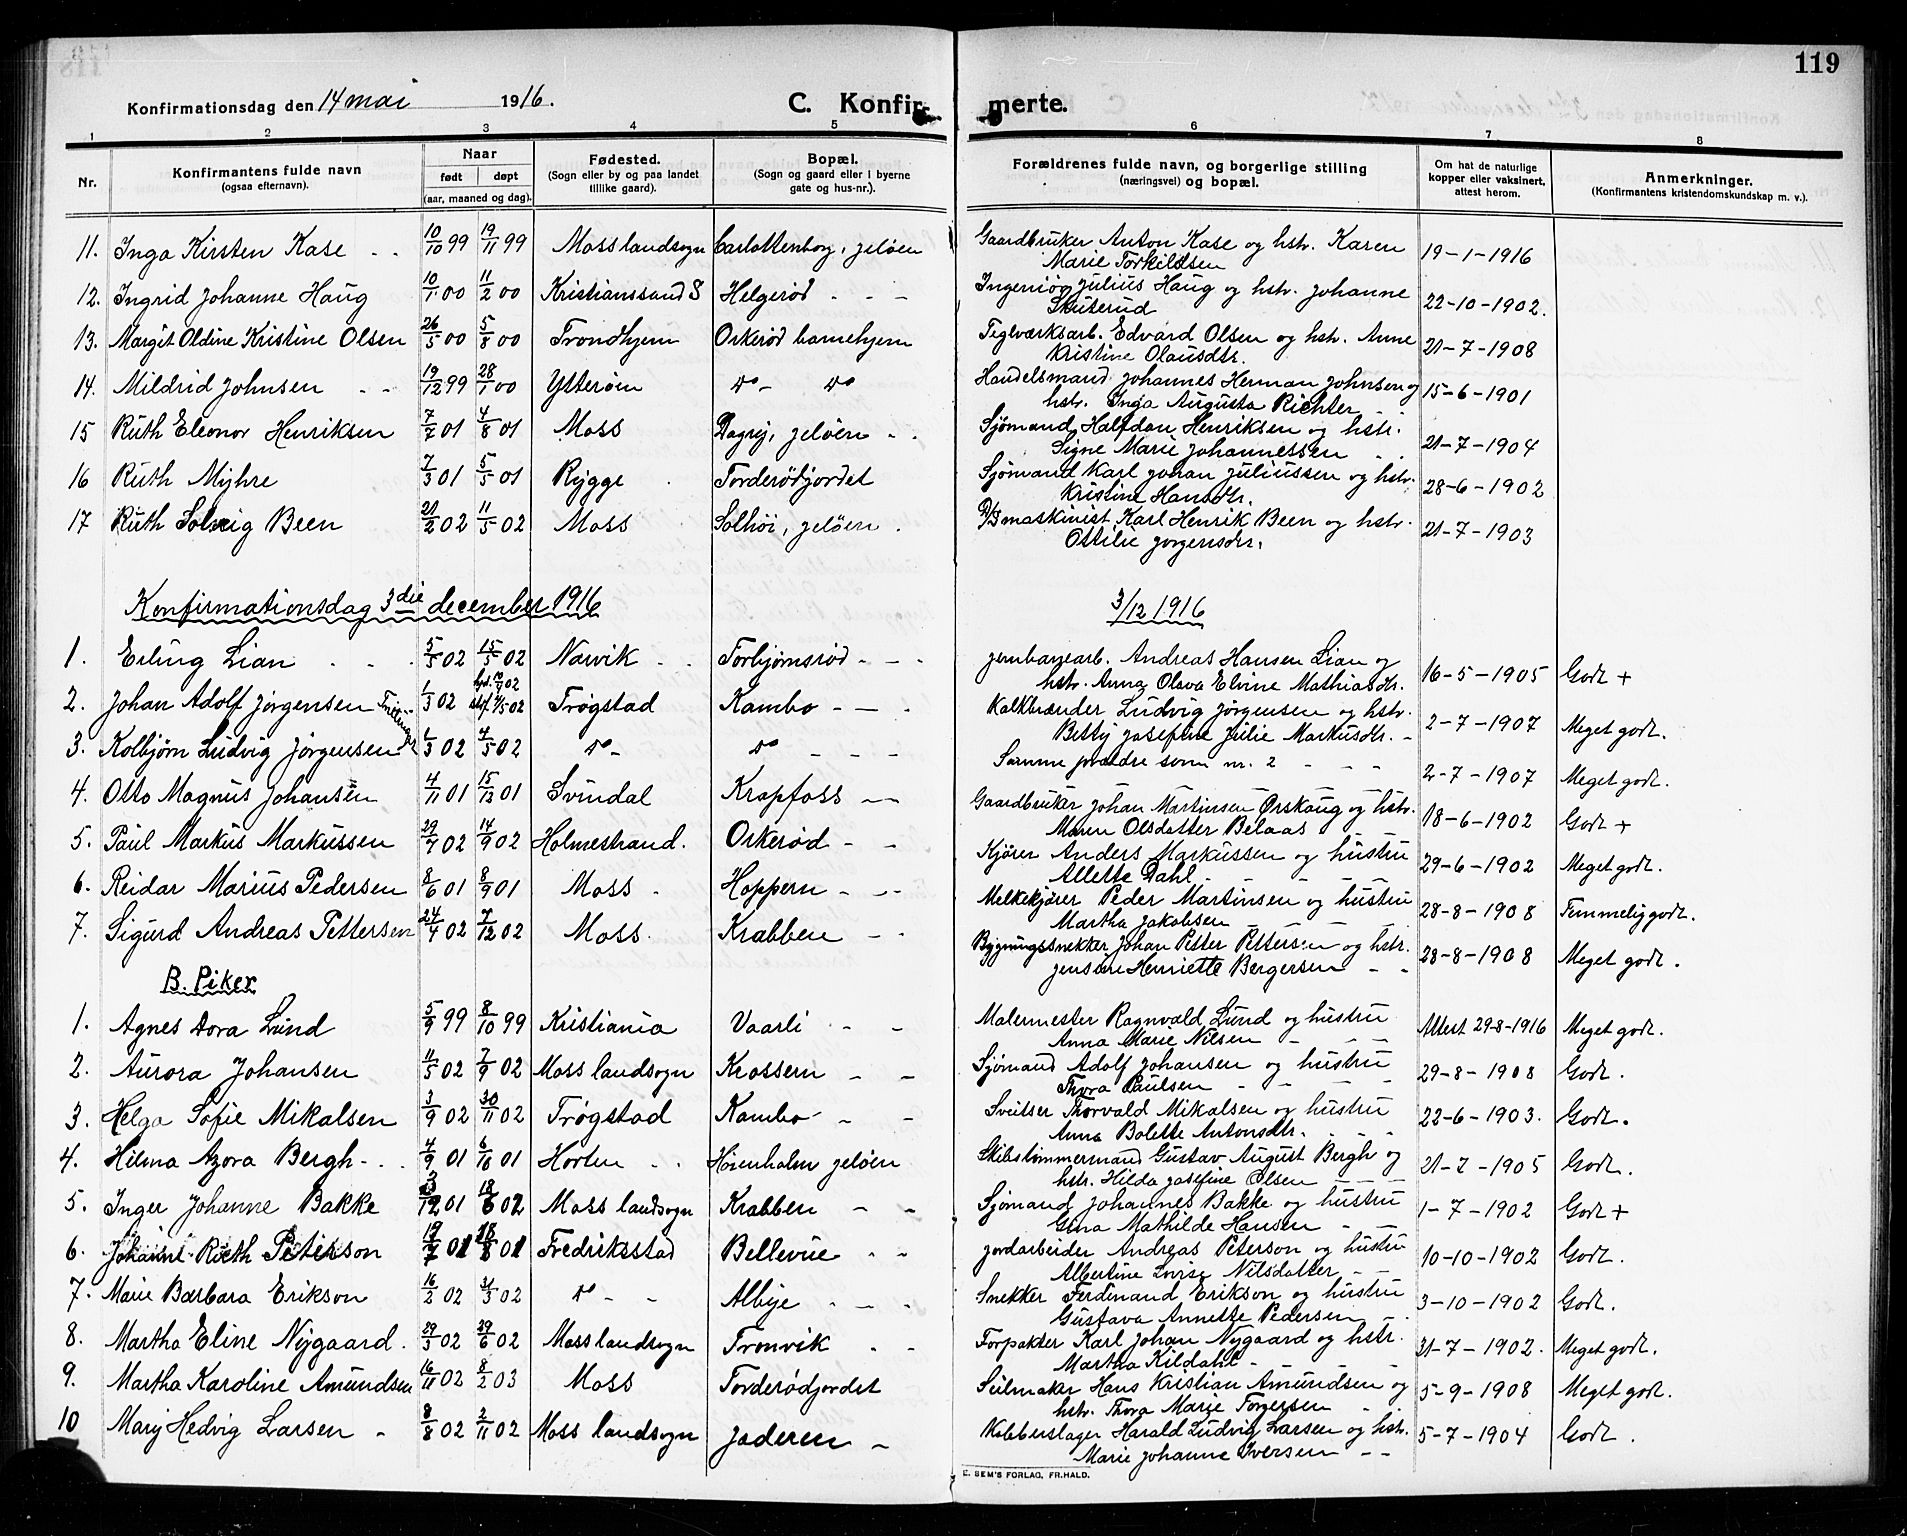 119
Konfirmationsdag den 14 mai 1916. C. Konfirmerte.
1 2 3 4 5 6 7 8
Nr. Konfirmantens fulde navn (ogsaa efternavn). Naar født døpt (aar, maaned og dag). Fødested. (Sogn eller by og paa landet tillike gaard). Bopæl. (Sogn og gaard eller i byerne gate og hus-nr.). Forældrenes fulde navn, og borgerlige stilling (næringsvei) og bopæl. Om hat de naturlige kopper eller vaksinert, attest herom. Anmerkninger. (Konfirmantens kristendomskundskap m. v.).
11. Inga Kirsten Kase 10/10 99 19/11 99 Moss landsogn Carlottenborg, jeløen Gaardbruker Anton Kase og hstr. Karen Marie Torkildsen 19-1-1916
12. Ingrid Johanne Haug 10/1 00 11/2 00 Kristianssand S Helgerød Ingeniør Julius Haug og hstr. Johanne Skuterud 22-10-1902.
13. Margit Oldine Kristine Olsen 26/5 00 5/8 00 Trondhjem Orkerød barnehjem Teglværksarb. Edvard Olsen og hstr. Anne Kristine Olausdtr. 21-7-1908
14. Mildrid Johnsen 19/12 99 28/1 00 Ytterøen do do Handelsmand Johannes Herman Johnsen og hstr. Inga Augusta Richter 15-6-1901
15 Ruth Eleonor Henriksen 7/7 01 4/8 01 Moss Dagrej, jeløen Sjømand Halfdan Henriksen og hstr. Signe Marie Johannessen 21-7-1904
16 Ruth Myhre 7/3 01 5/5 01 Rygge Torderødjordet Sjømand Karl Johan Juliussen og hstr. Kristine Hansdtr. 28-6-1902
17 Ruth Solveig Been 21/2 02 11/5 02 Moss Solhøi, jeløen. D/S maskinist Karl Henrik Been og hstr. Ottilie Jørgensdtr. 21-7-1903
Konfirmationsdag 3die december 1916 3/12 1916
1. Erling Lian 5/5 02 15/5 02 Narvik Torbjørnsrød Jernbanearb. Andreas Hansen Lian og hstr. Anna Olava Elvine Mathiasdtr. 16-5-1905 Godt +
2. Johan Adolf Jørgensen Tvillinger 1/3 02 Trøgstad Kambo Kalkbrænder Ludvig Jørgensen og hstr. Betty Josefine Julie Markusdtr. 2-7-1907 Meget godt.
3. Kolbjørn Ludvig Jørgensen 1/3 02 4/5 02 do do Samme forældre som nr. 2 2-7-1907 Meget godt.
4. Otto Magnus Johansen 4/11 01 15/12 01 Svindal Krapfoss Gaardbruker Johan Martinsen Ørskaug og hstr. Maren Olsdatter Belaas 18-6-1902 Godt +
5. Paul Markus Markussen 29/7 02 14/9 02 Holmestrand. Orkerød Kjører Anders Markussen og hustru Allette Dahl 29-6-1902 Meget godt.
6. Reidar Marius Pedersen 8/6 01 8/9 01 Moss Hoppern Melkekjører Peder Martinsen og hustru Martha Jakobsen 28-8-1908 Temmelig godt.
7. Sigurd Andreas Pettersen 24/4 02 7/12 02 Moss. Krabben Bygningssnekker Johan Petter Pettersen og hstr. Jensine Henriette Bergersen 28-8-1908 Meget godt.
B. Piker
1. Agnes Dora Lund 5/9 99 8/10 99 Kristiania Vaarli Malermester Ragnvald Lund og hustru Anna Marie Nilsen Attest 29-8-1916 Meget godt.
2. Aurora Johansen 11/5 02 7/9 02 Moss landsogn Krossern Sjømand Adolf Johansen og hustru Thora Paulsen 29-8-1908 Godt.
3. Helga Sofie Mikalsen 3/9 02 30/11 02 Trøgstad Kambo Sveitser Thorvald Mikalsen og hustru Anna Bolette Antonsdtr. 22-6-1903. Godt.
4. Hilma Azora Bergh 4/9 01 6/10 01 Horten Høienholm jeløen Skibstømmermand Gustav August Bergh og hstr. Hilda Josefine Olsen 21-7-1905 Godt.
5. Inger Johanne Bakke 3/12 01 18/6 02 Moss landsogn Krabben Sjømand Johannes Bakke og hustru Gina Mathilde Hansen 1-7-1902 Godt +
6. Johanne Ruth Peterson 19/7 01 18/8 01 Fredriksstad Bellevue Jordarbeider Andreas Peterson og hustru Albertine Lovise Nilsdatter 10-10-1902 Godt.
7. Marie Barbara Erikson 16/2 02 31/3 02 do Albye Snekker Ferdinand Erikson og hustru Gustava Annette Pedersen 3-10-1902 Godt.
8. Martha Eline Nygaard. 29/3 02 29/6 02 Moss landsogn Tronvik Forpakter Karl Johan Nygaard og hstr. Martha Kildahl 31-7-1902. Meget godt.
9. Martha Karoline Amundsen 16/11 02 8/2 03 Moss Torderødjordet Seilmaker Hans Kristian Amundsen og hstr. Thora Marie Torgersen 5-9-1908 Meget godt.
10 Mary Hedvig Larsen 8/8 02 2/11 02 Moss landsogn Jaderen Kobberslager Harald Ludvig Larsen og hstr. Marie Johanne Iversen 5-7-1904 Godt.
E. SEM'S FORLAG, FR.HALD.